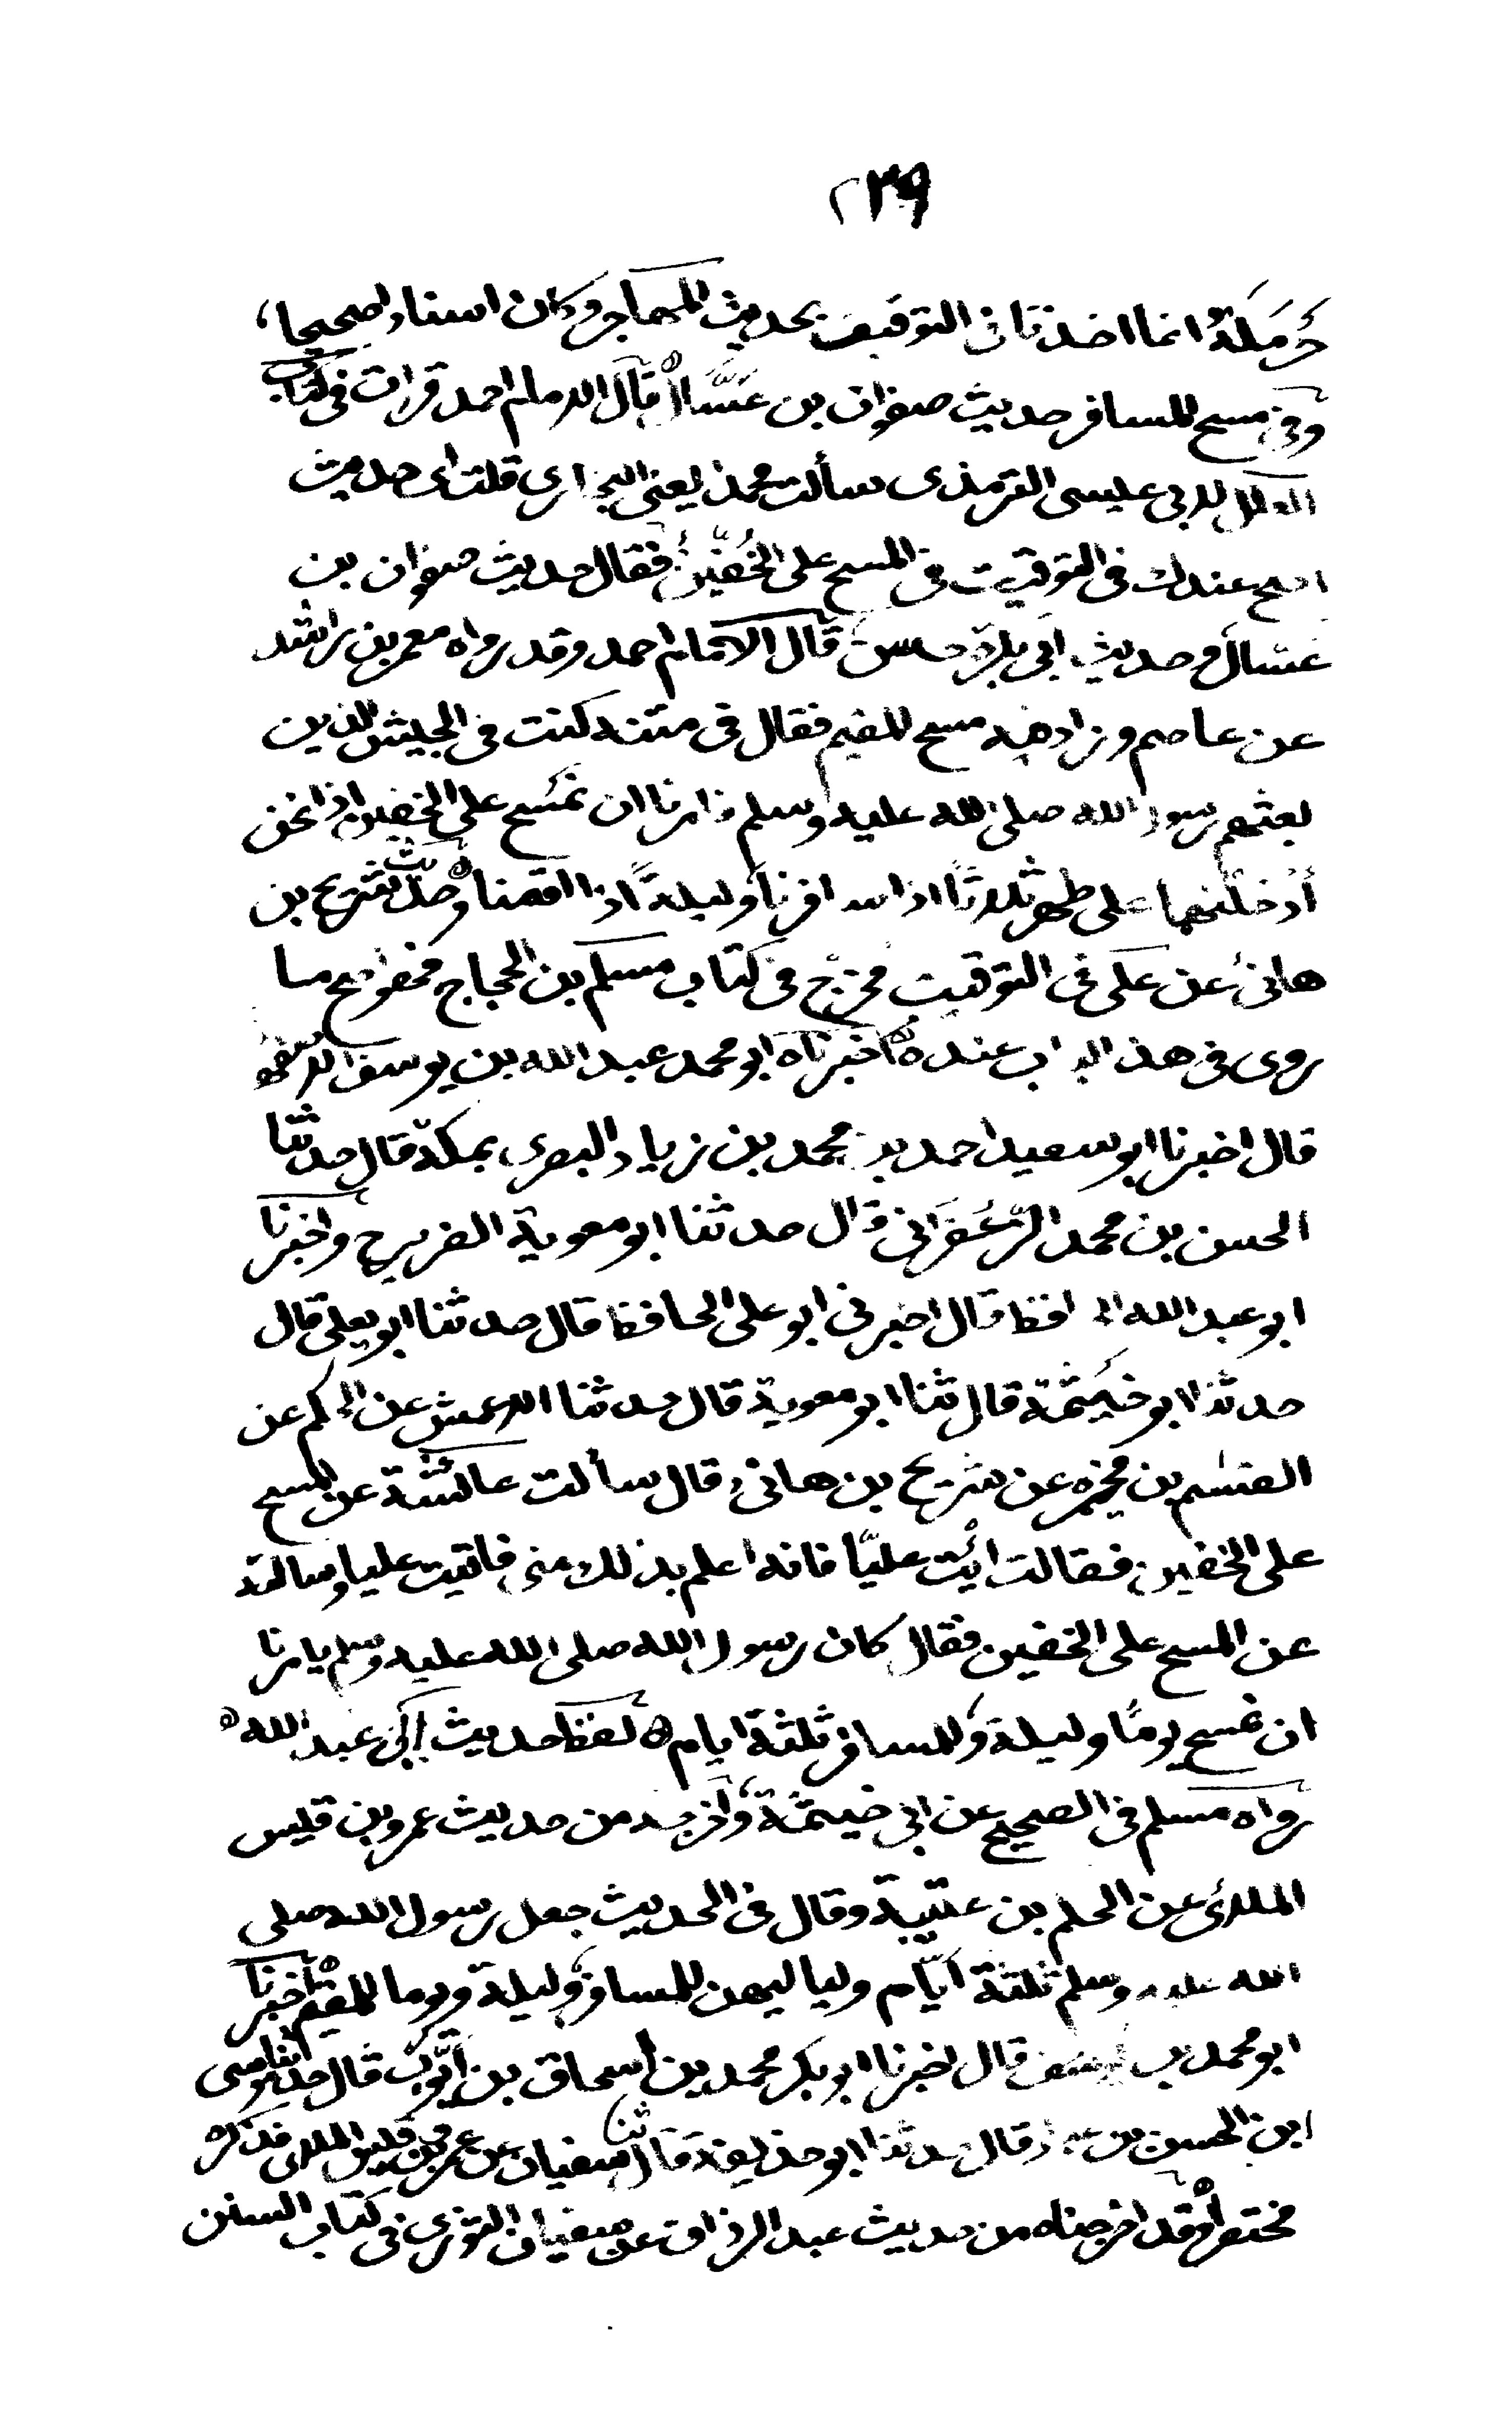 ٢٣٩
حَرمَلَةُ انما اخذنا في التوقيف بحديث المهاجر وكان اسنادا صحيحا،
وفي مسح المسافر حديث صفوان بن عَسَّال قال الامام احمد قرات في كتاب
العلل لابي عيسى الترمذى سألت محمدا يعنى البخارى قلت اى حديث
اصح عندك في التوقيت في المسح على الخُفّين فقال حديث صفوان بن
عسّال وحديث ابى بكرة حسن قال الامام احمد وقد رواه معمر بن راشد
عن عاصم وزاد فيه مسح المقيم فقال في متنه كنت في الجيش الذين
بعثهم رسول الله صلى الله عليه وسلم فامرنا ان نمسح على الخفين اذا نحن
أدخلنهما على طهر ثلاثا اذا سافرنا وليلةً اذا اقمنا وحديث شريح بن
هانئ عن على في التوقيت مخرّج في كتاب مسلم بن الحجاج فهو اصح ما
روى في هذا الباب عنده اخبرناه ابو محمد عبد الله بن يوسف الاصبهانى
قال اخبرنا ابو سعيد احمد بن محمد بن زياد البصرى بمكة قال حدثنا
الحسن بن محمد الزّعفَرانى قال حدثنا ابو معوية الضرير ح واخبرنا
ابو عبد الله الحافظ قال اخبرنى ابو على الحافظ قال حدثنا ابو يعلى قال
حدثنا ابو خيثمة قال ثنا ابو معوية قال حدثنا الاعمش عن الحكم عن
القسم بن مخيمره عن شريح بن هانئ قال سألت عائشة عن المسح
على الخفين فقالت ائت عليّا فانه اعلم بذلك منى فاتيت عليا وسالته
عن المسح على الخفين فقال كان رسول الله صلى الله عليه وسلم يامرنا
ان نمسح يومًا وليلة وللمسافر ثلثة ايام ه لفظ حديث ابى عبد الله ه
رواه مسلم في الصحيح عن ابى خيثمة واخرجه من حديث عمرو بن قيس
الملائى عن الحكم بن عتيبة وقال في الحديث جعل رسول الله صلى
الله عليه وسلم ثلثة ايّام ولياليهن للمسافر وليلة ويوما للمقيم اخبرنا
ابو محمد بن يوسف قال اخبرنا ابو بكر محمد بن اسحاق بن ايّوب قال حدثنا موسى
ابن الحسن بن قال حدثنا ابو حذيفة قال ثنا سفيان عن عمرو بن قيس الملائى فذكره
مختصرا وقد اخرجناه من حديث عبد الرزاق عن سفيان الثورى في كتاب السنن